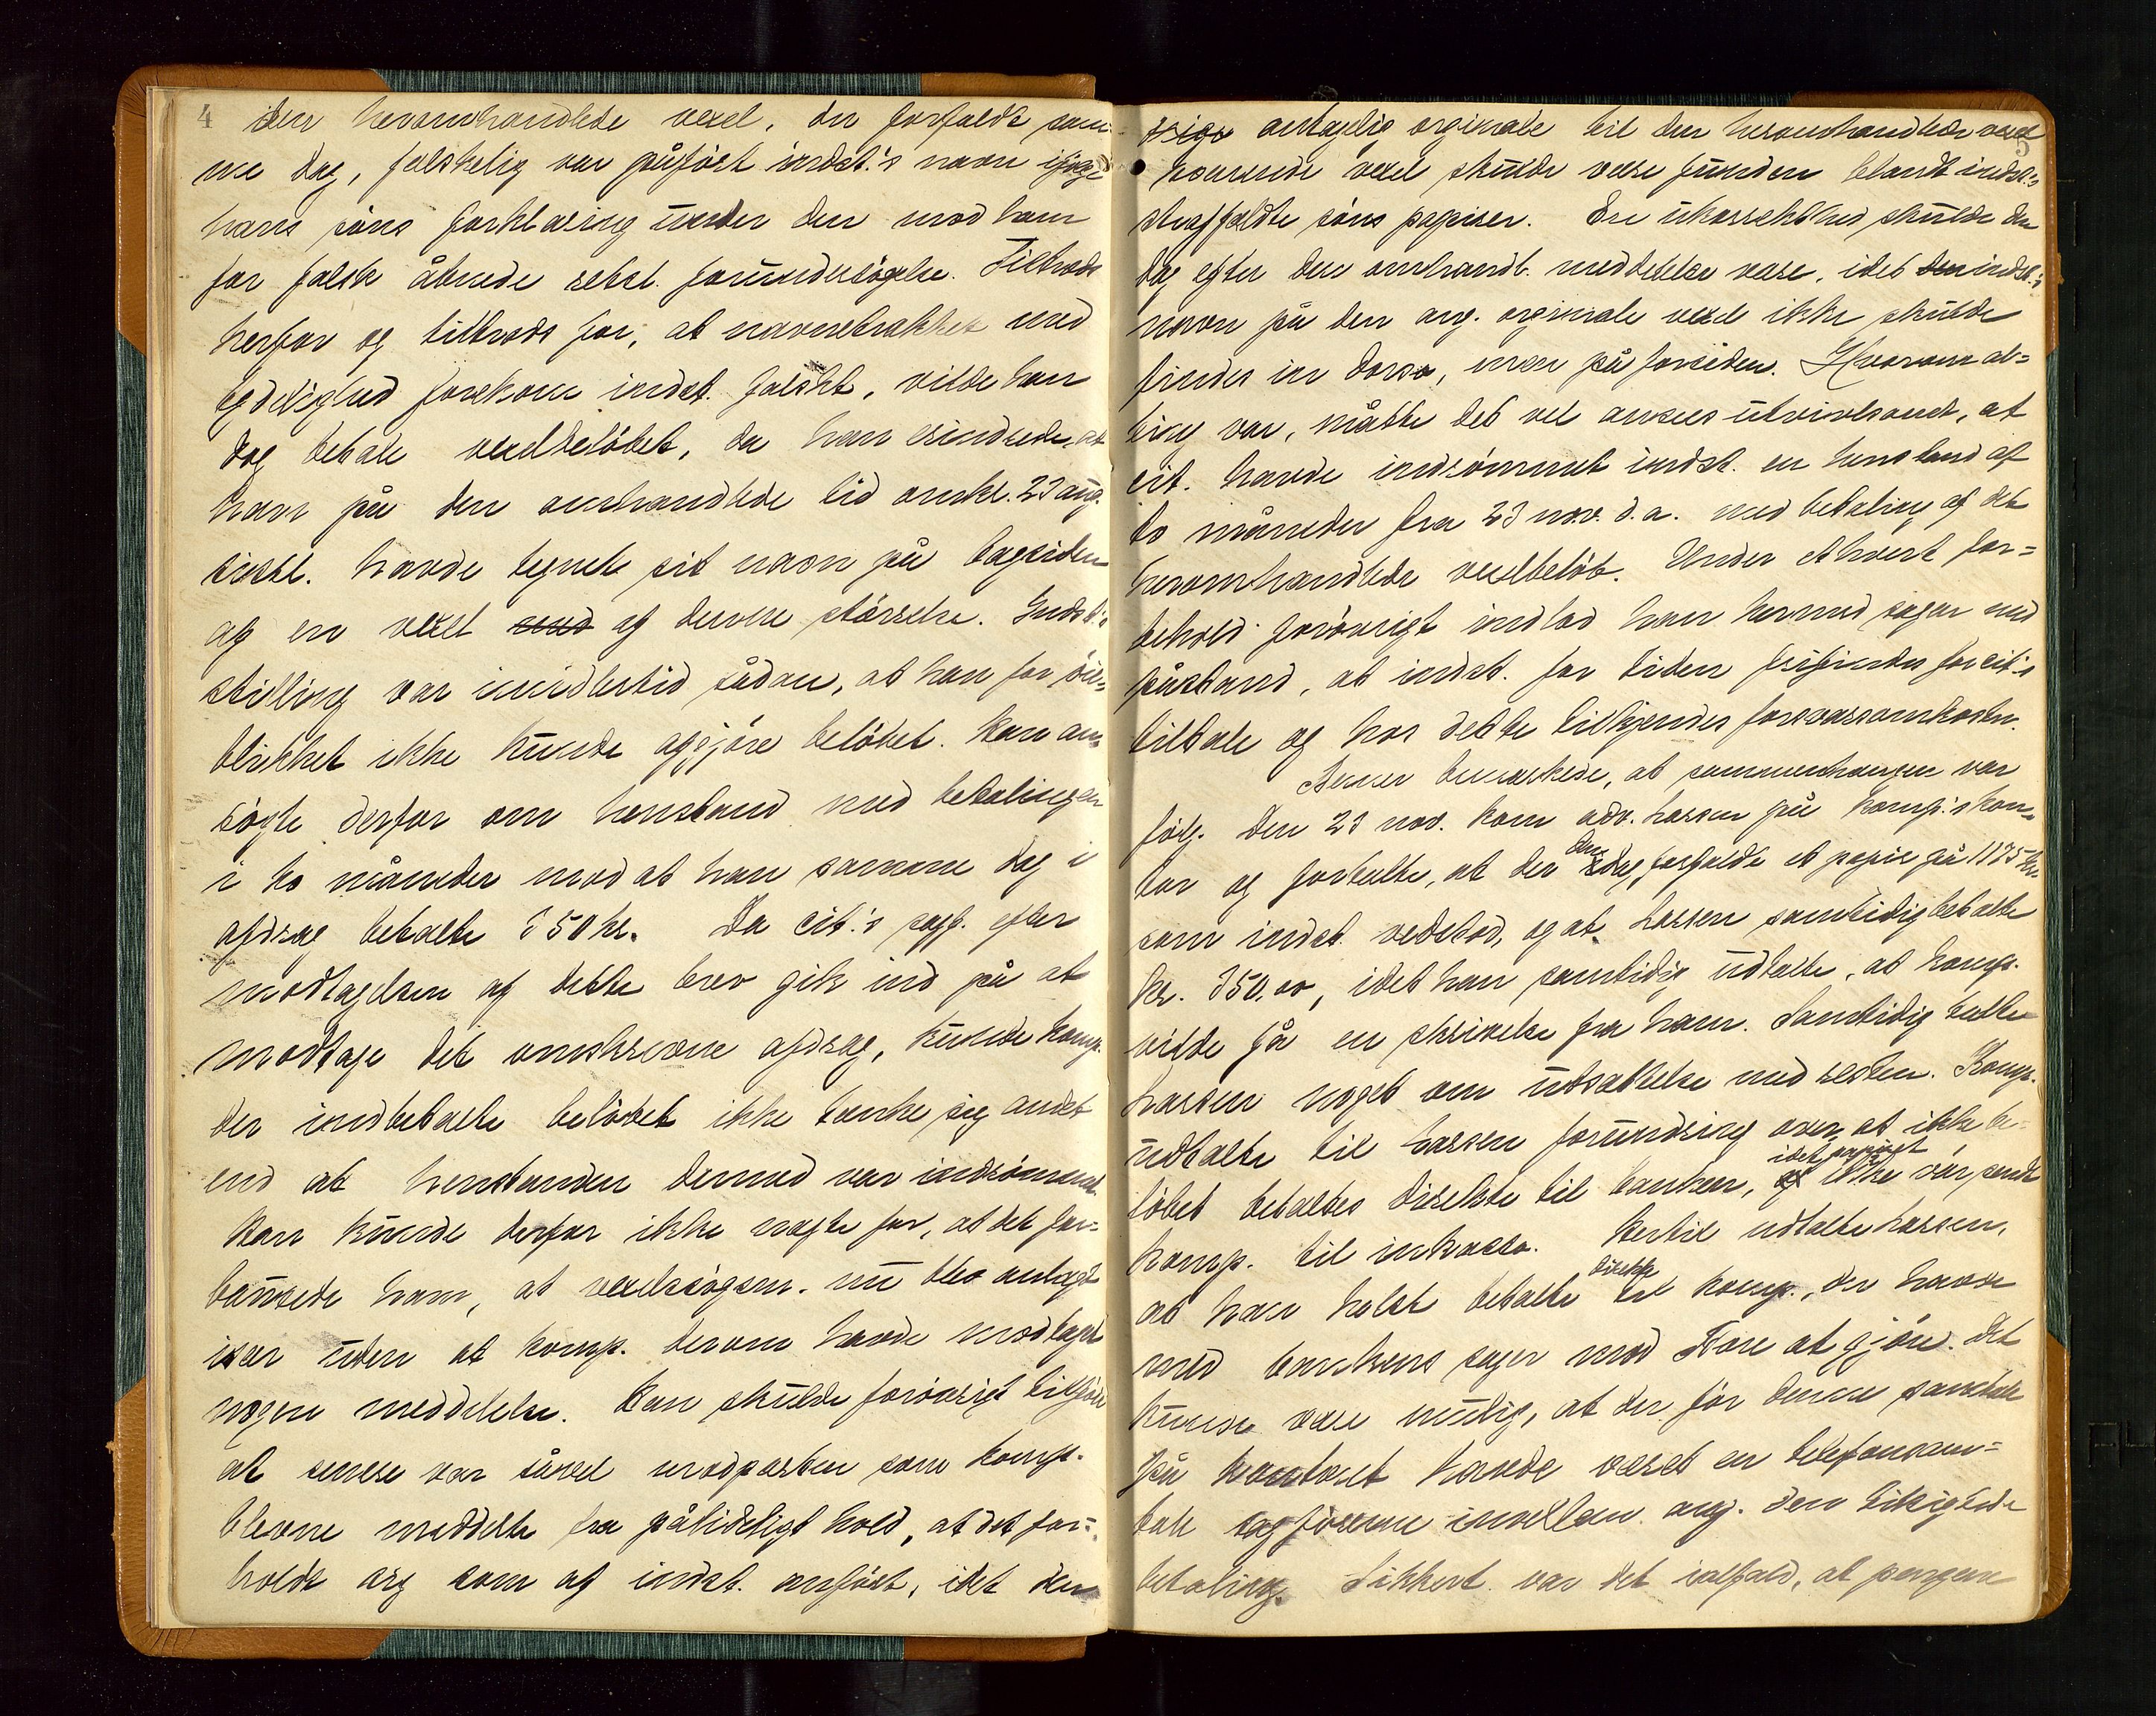 4
den heromhandlede vexel, der forfaldt sam-
me dag, falskelig var påført indst.'s navn ifølge
hans søns forklaring under den mod ham
for falsk åbnede retsl. forundersøgelse. Tiltrods
herfor og tiltrods for, at navnetrækket med
tydelighed forekom indst. falskt, vilde han
dog betale vexelbeløbet, da han erindrede, at
han på den omhandlede tid omkr. 23 aug.
sidstl. havde tegnet sit navn på bagsiden
af en vexel med af denne størrelse. Indst.'s
stilling var imidlertid sådan, at han for øie-
blikket ikke kunde afgjøre beløbet. Han an-
søgte derfor om henstand med betalingen
i to måneder mod at han samme dag i
afdrag betalte 350 kr. Da cit.'s sagf. efter
modtagelsen af dette brev gik ind på at
modtage det omskrevne afdrag, kunde komp.
der indbetalte beløbet ikke tænke sig andet
end at henstanden dermed var indrømmet.
Han kunde derfor ikke nægte for, at det for-
bausede ham, at vexelsøgsm. nu blev anlagt
især uden at komp. derom havde modtaget
nogen meddelelse. Han skulde forøvrigt tilføie
at senere var såvel modparten som komp.
blevne meddelte fra pålideligt hold, at det for-
holdt sig som af indst. anført, idet den
5
antagelig orginale til den heromhandlede vexel
svarende vexel skulde være funden blandt indst.'s
straffældte søns papirer. En ukorrekthed skulde der
dog efter den omhandl. meddelelse være, idet den indst.'s
navn på den ang. orginale vexel ikke skulde
findes in dorso, men på forsiden. Hvorom al-
ting var, måtte det vel ansees utvivlsomt, at
cit. havde indrømmet indst. en henstand af
to måneder fra 23 nov. d.a. med betaling af det
heromhandlede vexelbeløb. Under ethvert for-
behold forøvrigt indlod han hermed sagen med
påstand, at indst. for tiden frifindes for cit.'s
tiltale og hos dette tilkjendes forsvarsomkostn.
bemærkede, at sammenhængen var
følg. Den 23 nov. kom adv. Larsen på komp.'s kon-
tor og fortalte, at der den dag forfaldt et papir på 1175 kr.
som indst. vedstod, og at Larsen samtidig betalte
kr. 350,00, idet han samtidig udtalte, at komp.
vilde få en skrivelse fra ham. Samtidig talte
Larsen noget om udsættelse med resten. Komp.
udtalte til Larsen forundring over, at ikke be-
løbet betaltes direkte til banken, idet papiret ikke var sendt
komp. til inkasso. Hertil udtalte Larsen,
at han helst betalte direkte til komp., der havde
med bankens sager mod Tore at gjøre. Det
kunde være mulig, at der før denne samtale
på kontoret havde været en telefonsam-
tale sagførerne imellem ang. den
betaling. Sikkert var det ialfald, at pengene